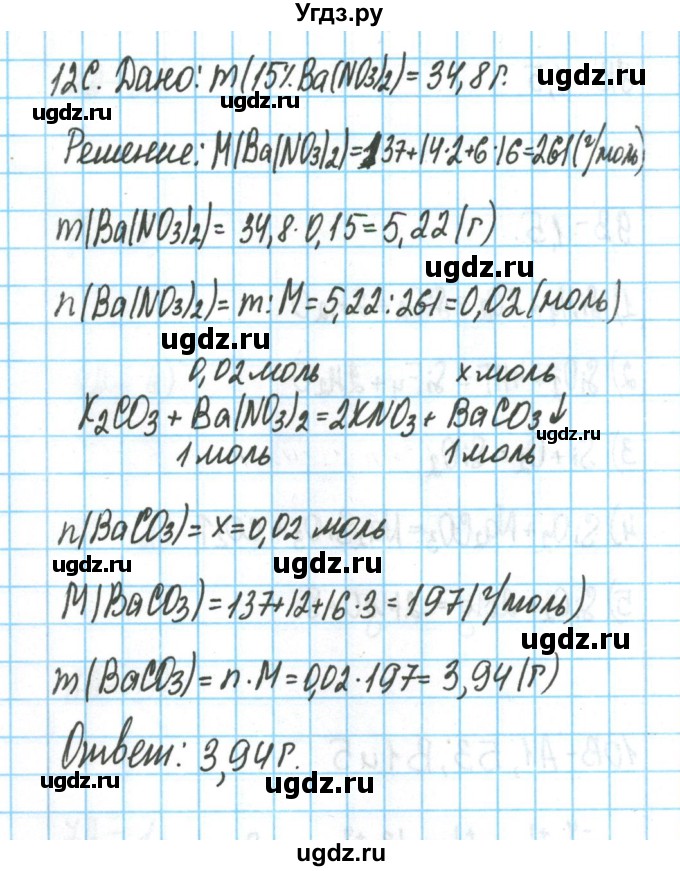 Угдз.ру
12С. Дано: m(15% Ba(NO3)2) = 34,8 г.
ugdz.ru
ugdz.ru
Решение: M(Ba(NO3)2) = 137+14·2+6·16=261(г/моль)
ugdz.ru
ugdz.ru
m(Ba(NO3)2) = 34,8·0,15=5,22(г)
ugdz.ru
n(Ba(NO3)2) = m:M=5,22:261=0,02(моль)
ugdz.ru
0,02 моль x моль
K2CO3 + Ba(NO3)2 = 2KNO3 + BaCO3↓
ugdz.ru
1 моль 1 моль
n(BaCO3) = x = 0,02 моль
ugdz.ru
ugdz.ru
M(BaCO3) = 137+12+16·3=197(г/моль)
ugdz.ru
m(BaCO3) = n·M=0,02·197=3,94(г)
ugdz.ru
ugdz.ru
Ответ: 3,94 г.
ugdz.ru
ugdz.ru
ugdz.ru